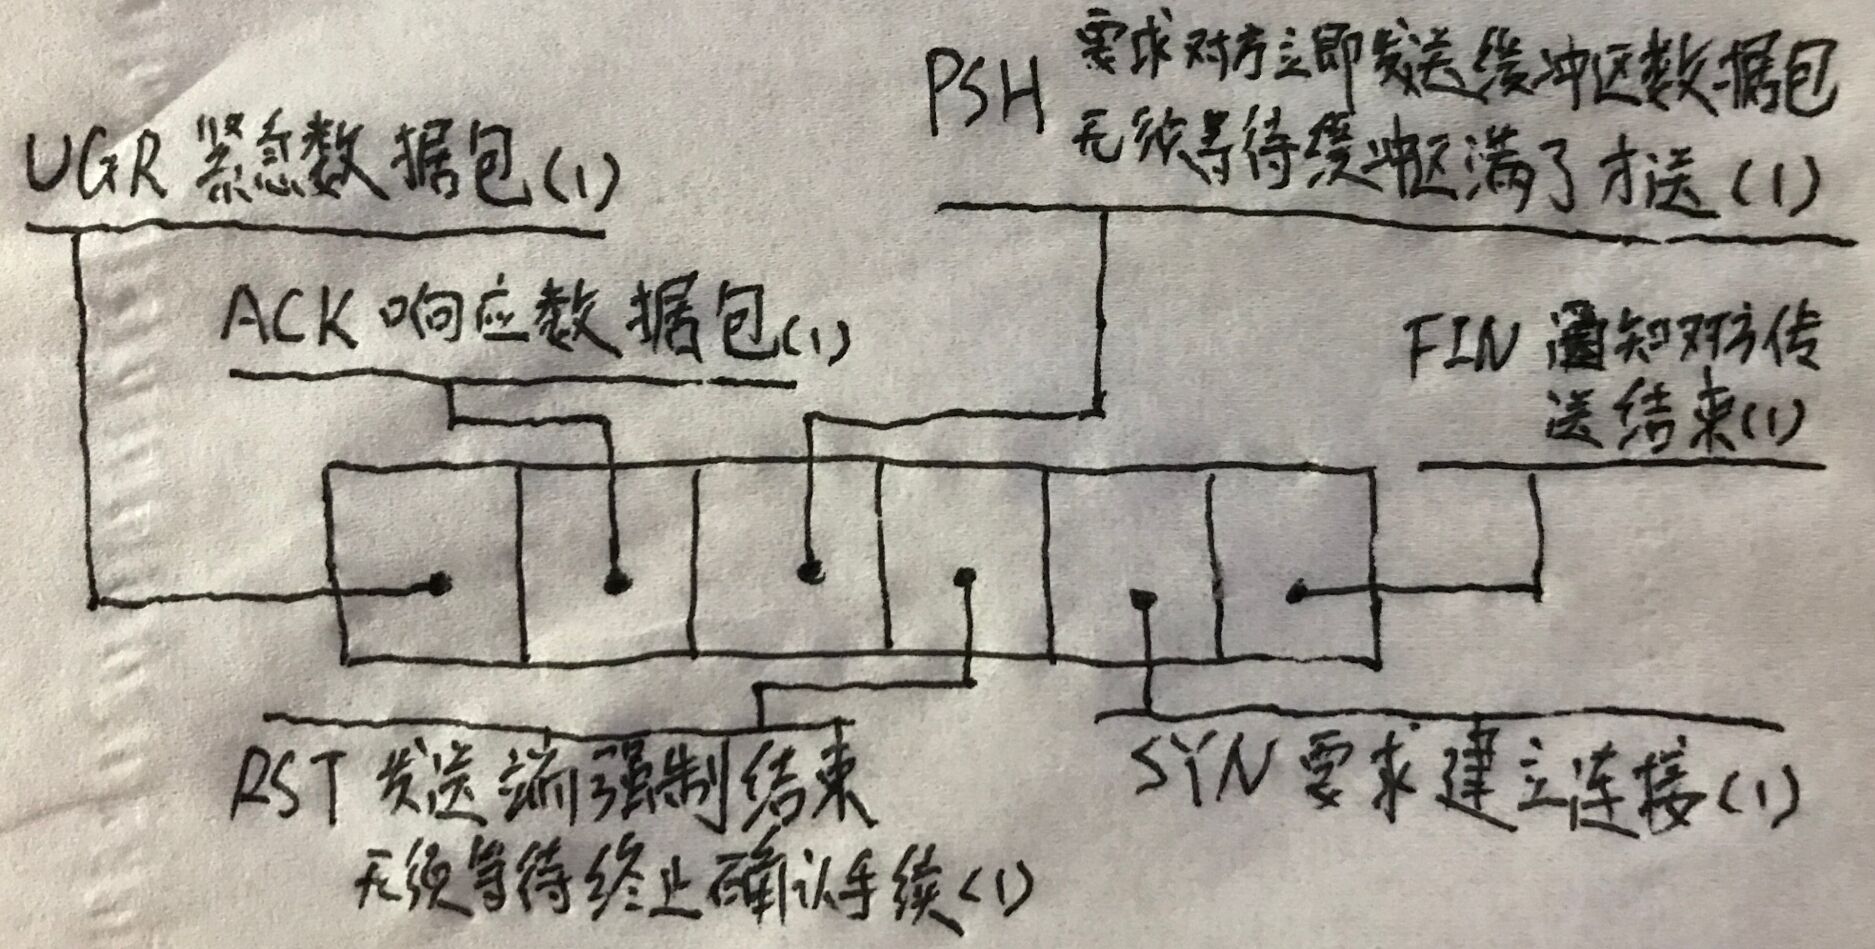 PSH 要求对方立即发送缓冲区数据包
无须等待缓冲区满了才送(1)
UGR 紧急数据包(1)
ACK 响应数据包(1)
FIN 通知对方传
送结束(1)
RST 发送端强制结束
无须等待终止确认手续(1)
SYN 要求建立连接(1)